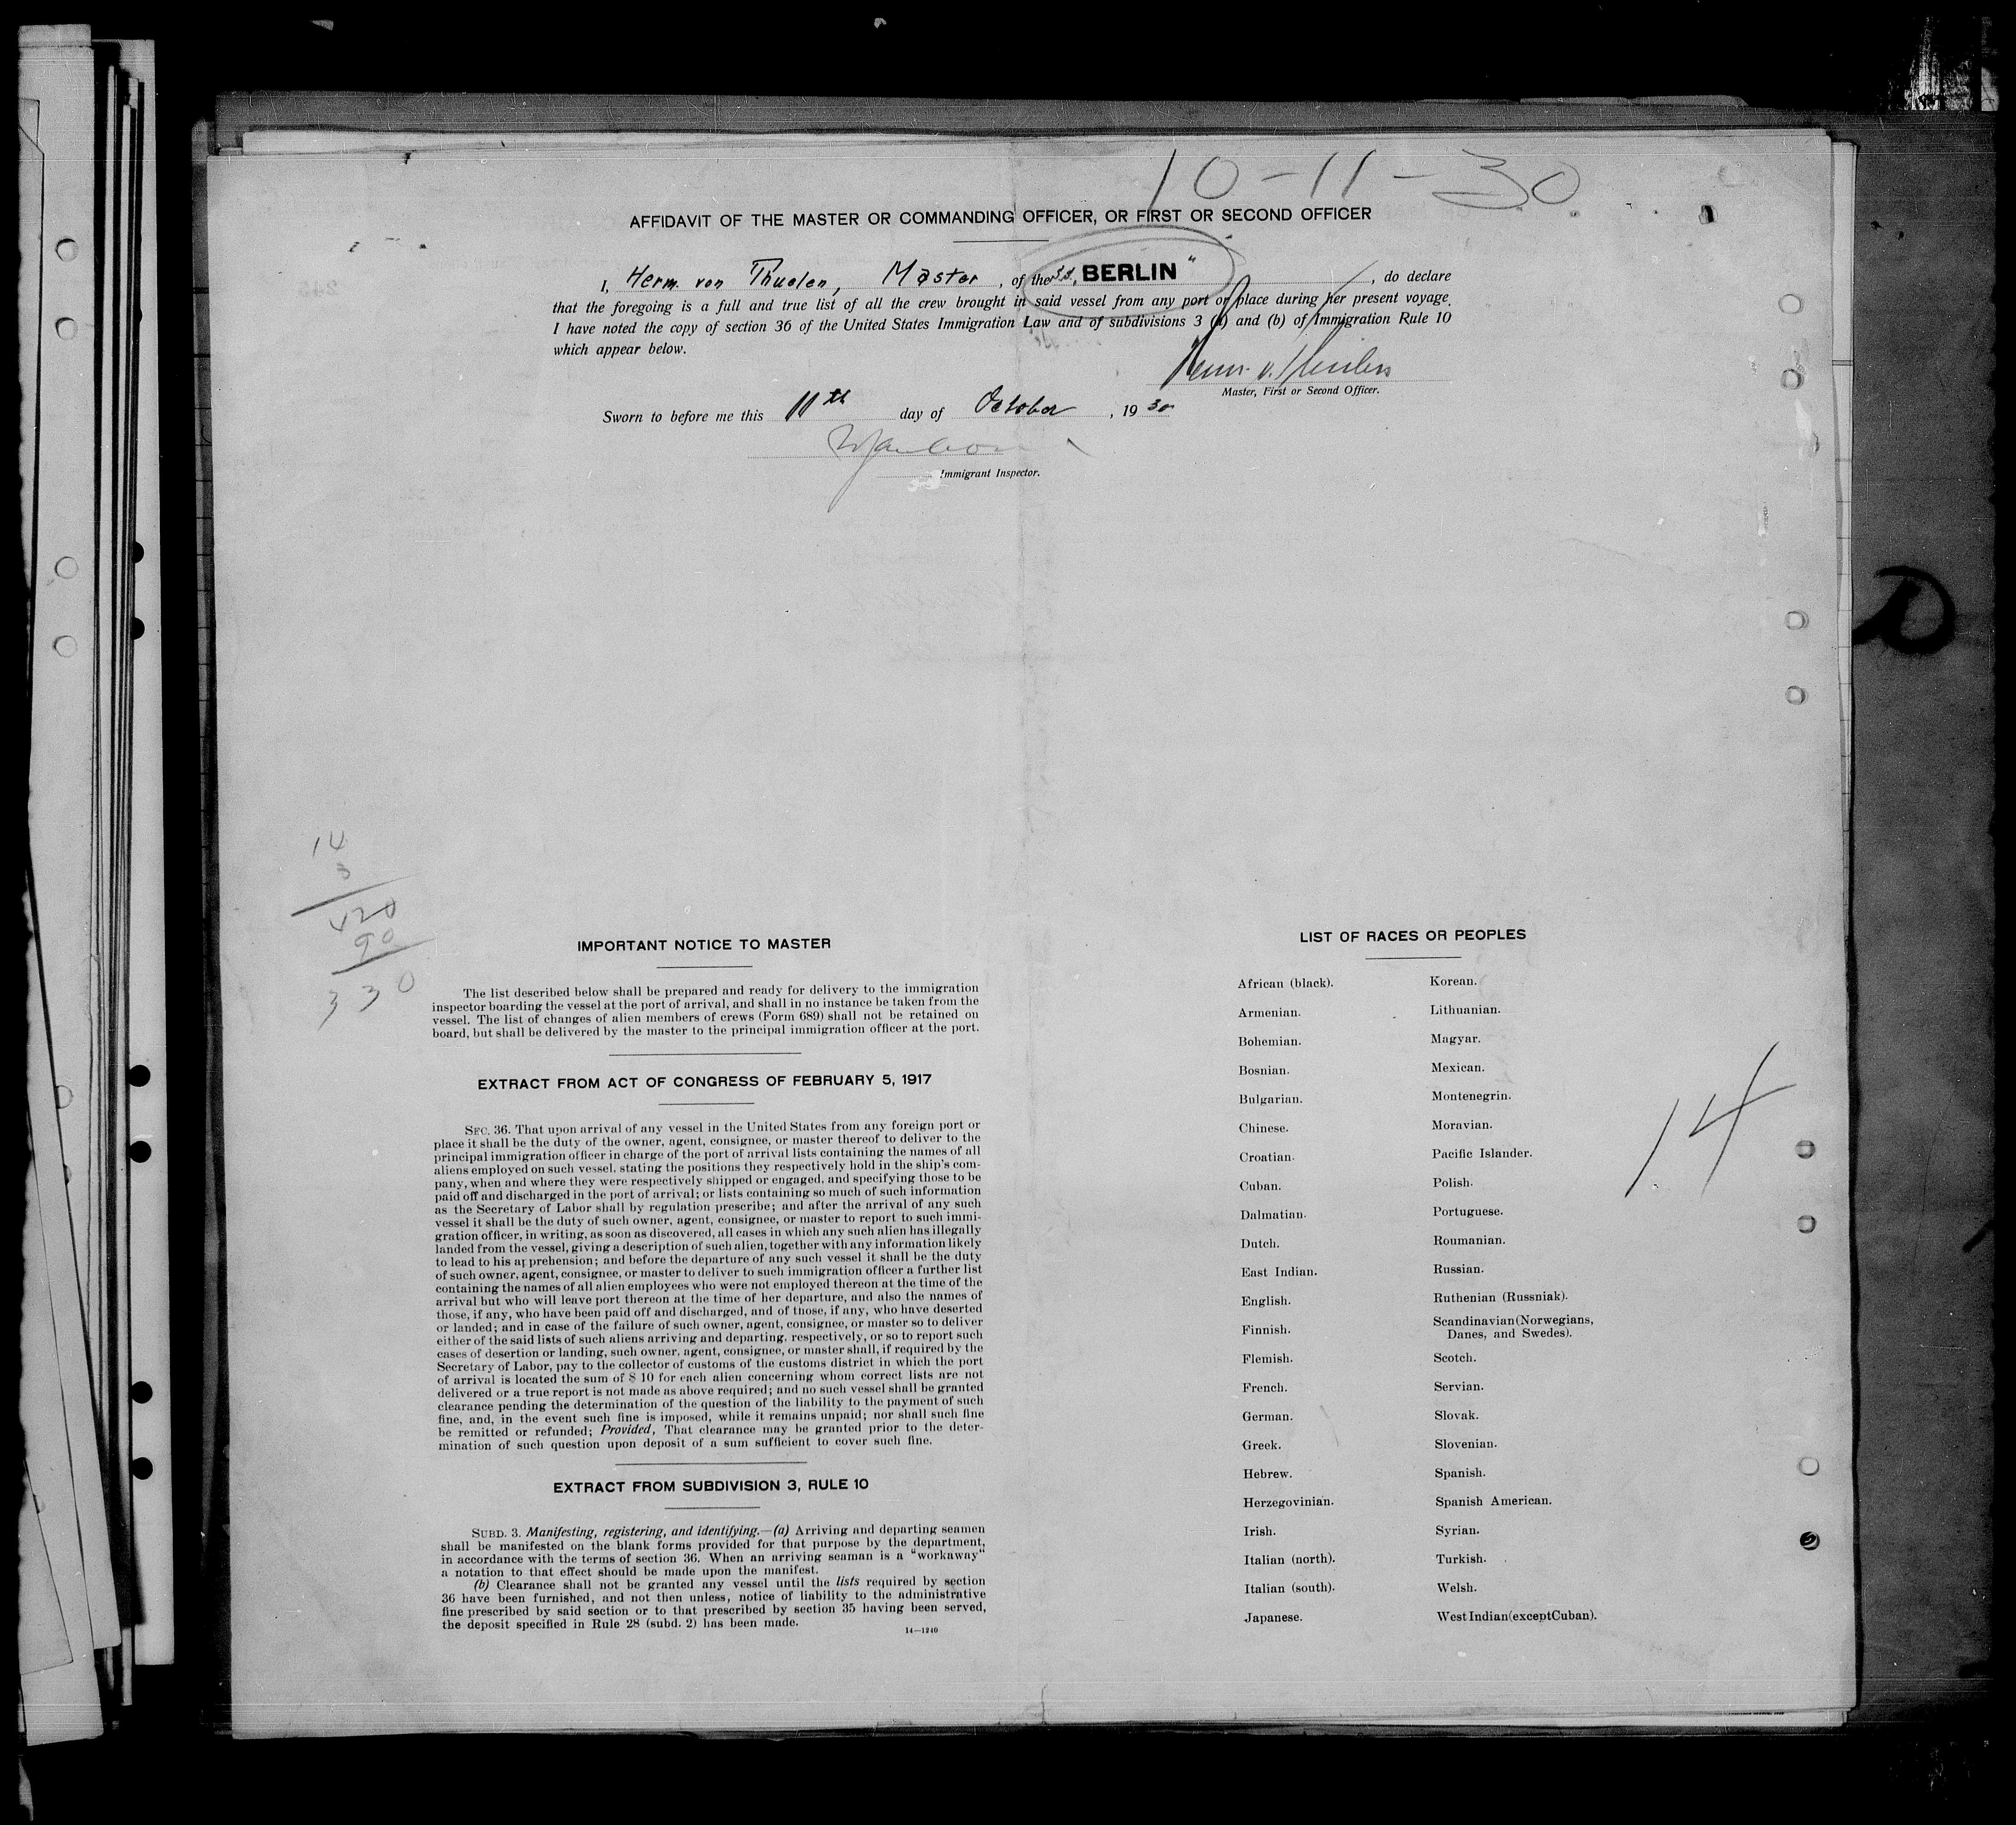 10-11-30
AFFIDAVIT OF THE MASTER OR COMMANDING OFFICER, OR FIRST OR SECOND OFFICER
I, Herm. von Thuelen, Master, of the S.S. „BERLIN", do declare
that the foregoing is a full and true list of all the crew brought in said vessel from any port or place during her present voyage.
I have noted the copy of section 36 of the United States Immigration Law and of subdivisions 3 (a) and (b) of Immigration Rule 10
which appear below.
Master, First or Second Officer.
Sworn to before me this 11th day of October, 1930
Immigrant Inspector.
D
14
3
420
90
330
IMPORTANT NOTICE TO MASTER
The list described below shall be prepared and ready for delivery to the immigration
inspector boarding the vessel at the port of arrival, and shall in no instance be taken from the
vessel. The list of changes of alien members of crews (Form 689) shall not be retained on
board, but shall be delivered by the master to the principal immigration officer at the port.
EXTRACT FROM ACT OF CONGRESS OF FEBRUARY 5, 1917
SEC. 36. That upon arrival of any vessel in the United States from any foreign port or
place it shall be the duty of the owner, agent, consignee, or master thereof to deliver to the
principal immigration officer in charge of the port of arrival lists containing the names of all
aliens employed on such vessel, stating the positions they respectively hold in the ship's com-
pany, when and where they were respectively shipped or engaged, and specifying those to be
paid off and discharged in the port of arrival; or lists containing so much of such information
as the Secretary of Labor shall by regulation prescribe; and after the arrival of any such
vessel it shall be the duty of such owner, agent, consignee, or master to report to such immi-
gration officer, in writing, as soon as discovered, all cases in which any such alien has illegally
landed from the vessel, giving a description of such alien, together with any information likely
to lead to his apprehension; and before the departure of any such vessel it shall be the duty
of such owner, agent, consignee, or master to deliver to such immigration officer a further list
containing the names of all alien employees who were not employed thereon at the time of the
arrival but who will leave port thereon at the time of her departure, and also the names of
those, if any, who have been paid off and discharged, and of those, if any, who have deserted
or landed; and in case of the failure of such owner, agent, consignee, or master so to deliver
either of the said lists of such aliens arriving and departing, respectively, or so to report such
cases of desertion or landing, such owner, agent, consignee, or master shall, if required by the
Secretary of Labor, pay to the collector of customs of the customs district in which the port
of arrival is located the sum of $ 10 for each alien concerning whom correct lists are not
delivered or a true report is not made as above required; and no such vessel shall be granted
clearance pending the determination of the question of the liability to the payment of such
fine, and, in the event such fine is imposed, while it remains unpaid; nor shall such fine
be remitted or refunded; Provided, That clearance may be granted prior to the deter-
mination of such question upon deposit of a sum sufficient to cover such fine.
EXTRACT FROM SUBDIVISION 3, RULE 10
SUBD. 3. Manifesting, registering, and identifying.—(a) Arriving and departing seamen
shall be manifested on the blank forms provided for that purpose by the department,
in accordance with the terms of section 36. When an arriving seaman is a "workaway"
a notation to that effect should be made upon the manifest.
(b) Clearance shall not be granted any vessel until the lists required by section
36 have been furnished, and not then unless, notice of liability to the administrative
fine prescribed by said section or to that prescribed by section 35 having been served,
the deposit specified in Rule 28 (subd. 2) has been made.
14—1240
LIST OF RACES OR PEOPLES
African (black).
Armenian.
Bohemian.
Bosnian.
Bulgarian.
Chinese.
Croatian.
Cuban.
Dalmatian.
Dutch.
East Indian.
English.
Finnish.
Flemish.
French.
German.
Greek.
Hebrew.
Herzegovinian.
Irish.
Italian (north).
Italian (south).
Japanese.
Korean.
Lithuanian.
Magyar.
Mexican.
Montenegrin.
Moravian.
Pacific Islander.
Polish.
Portuguese.
Roumanian.
Russian.
Ruthenian (Russniak).
Scandinavian (Norwegians,
Danes, and Swedes).
Scotch.
Servian.
Slovak.
Slovenian.
Spanish.
Spanish American.
Syrian.
Turkish.
Welsh.
West Indian (except Cuban).
14